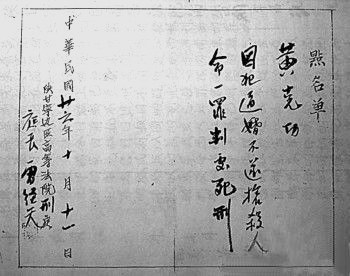 點名单
黄克功
因犯逼婚不遂槍殺人
命一罪判處死刑
中華民國廿六年十月十一日
陕甘寧边区高等法院刑庭
庭長雷经天